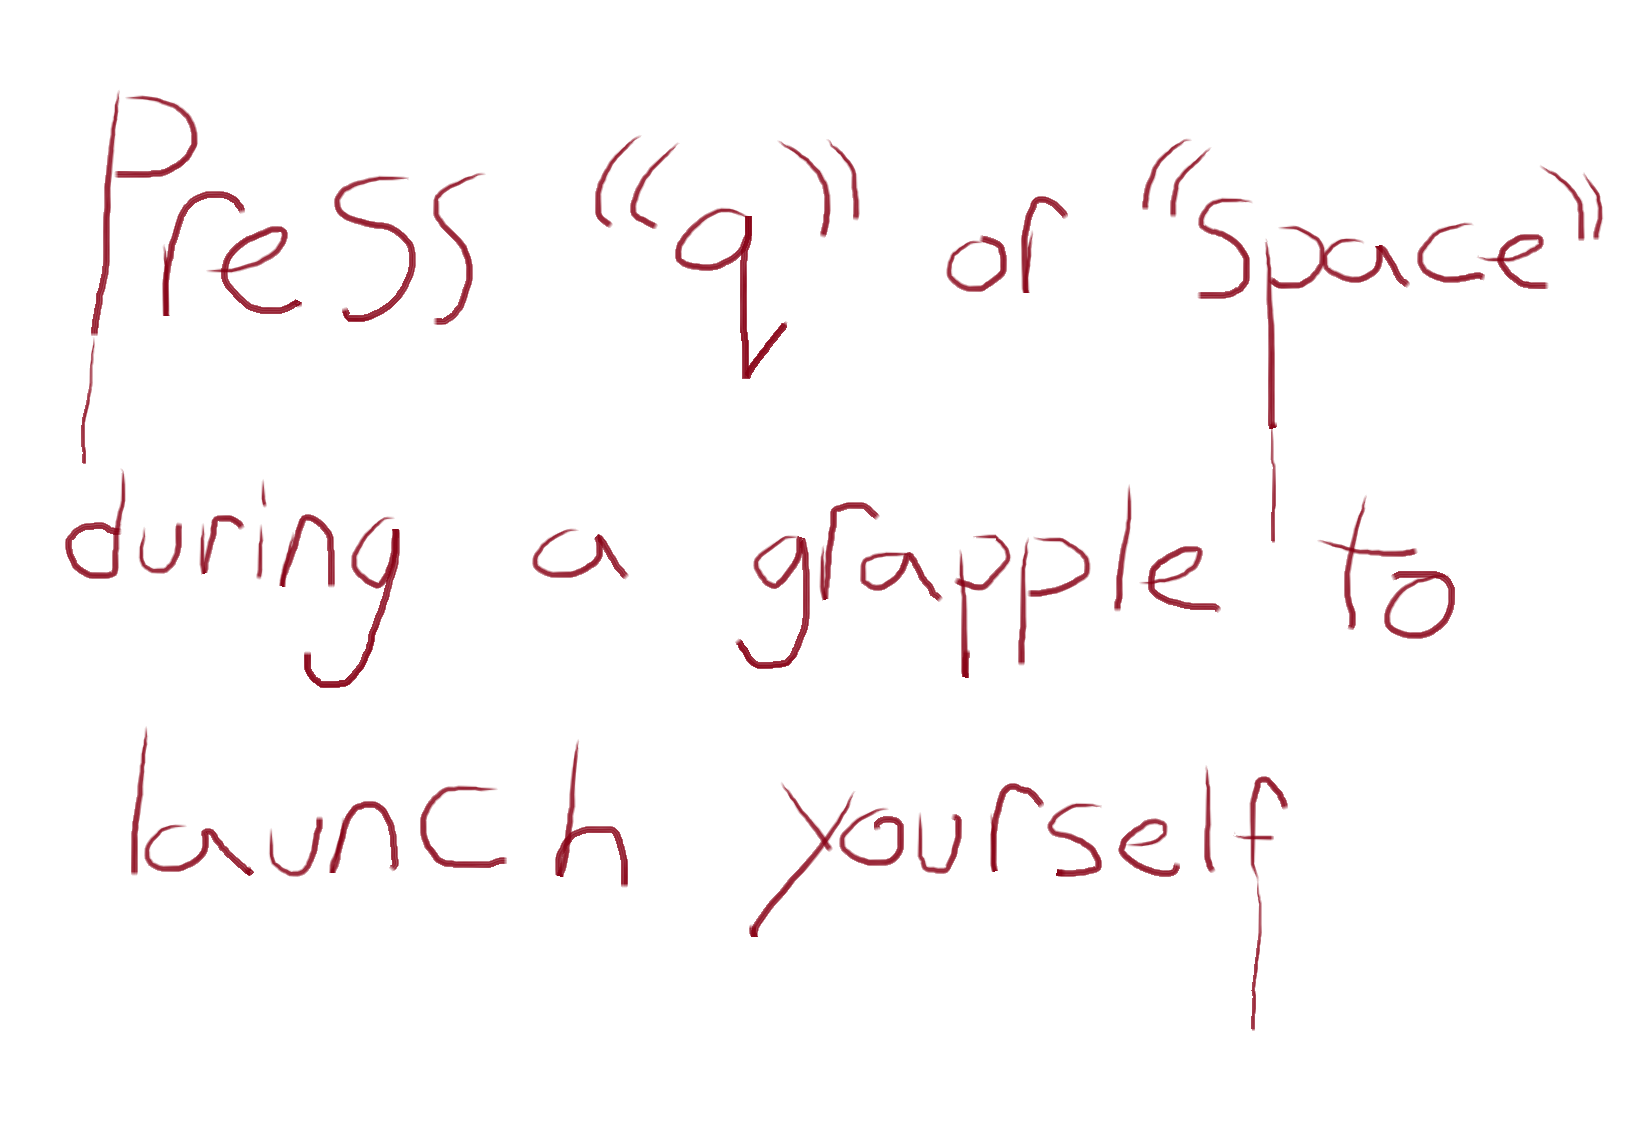 Press "q" or "space"
during a grapple to
launch yourself